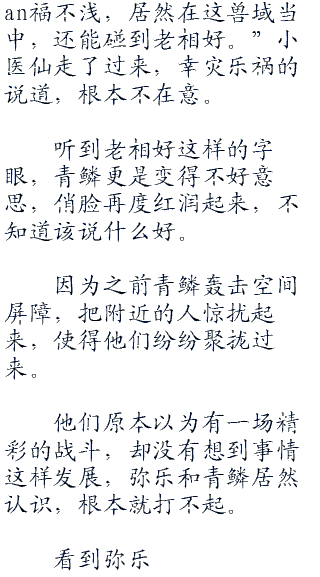 an福不浅，居然在这兽域当
中，还能碰到老相好。”小
医仙走了过来，幸灾乐祸的
说道，根本不在意。
听到老相好这样的字
眼，青鳞更是变得不好意
思，俏脸再度红润起来，不
知道该说什么好。
因为之前青鳞轰击空间
屏障，把附近的人惊扰起
来，使得他们纷纷聚拢过
来。
他们原本以为有一场精
彩的战斗，却没有想到事情
这样发展，弥乐和青鳞居然
认识，根本就打不起。
看到弥乐